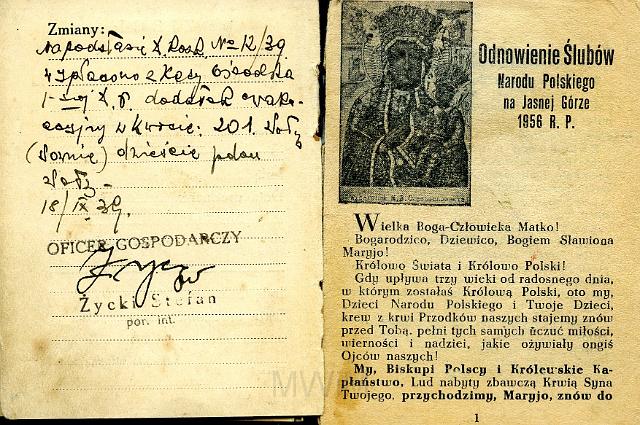 Zmiany:
na podstawie X. Rozk. № 12/39
wypłacono z Kasy Ośrodka
dodatek ewaku-
acyjny w kwocie: 201. złoty
złoty
18/IX 39.
OFICER GOSPODARCZY
Życki Stefan
por. int.
Odnowienie Ślubów
Narodu Polskiego
na Jasnej Górze
1956 R. P.
Wielka Boga-Człowieka Matko!
Bogarodzico, Dziewico, Bogiem Sławiona
Maryjo!
Królowo Świata i Królowo Polski!
Gdy upływa trzy wieki od radosnego dnia,
w którym zostałaś Królową Polski, oto my,
Dzieci Narodu Polskiego i Twoje Dzieci,
krew z krwi Przodków naszych stajemy znów
przed Tobą, pełni tych samych uczuć miłości,
wierności i nadziei, jakie ożywiały ongiś
Ojców naszych!
My, Biskupi Polscy i Królewskie Ka-
płaństwo, Lud nabyty zbawczą Krwią Syna
Twojego, przychodzimy, Maryjo, znów do
1